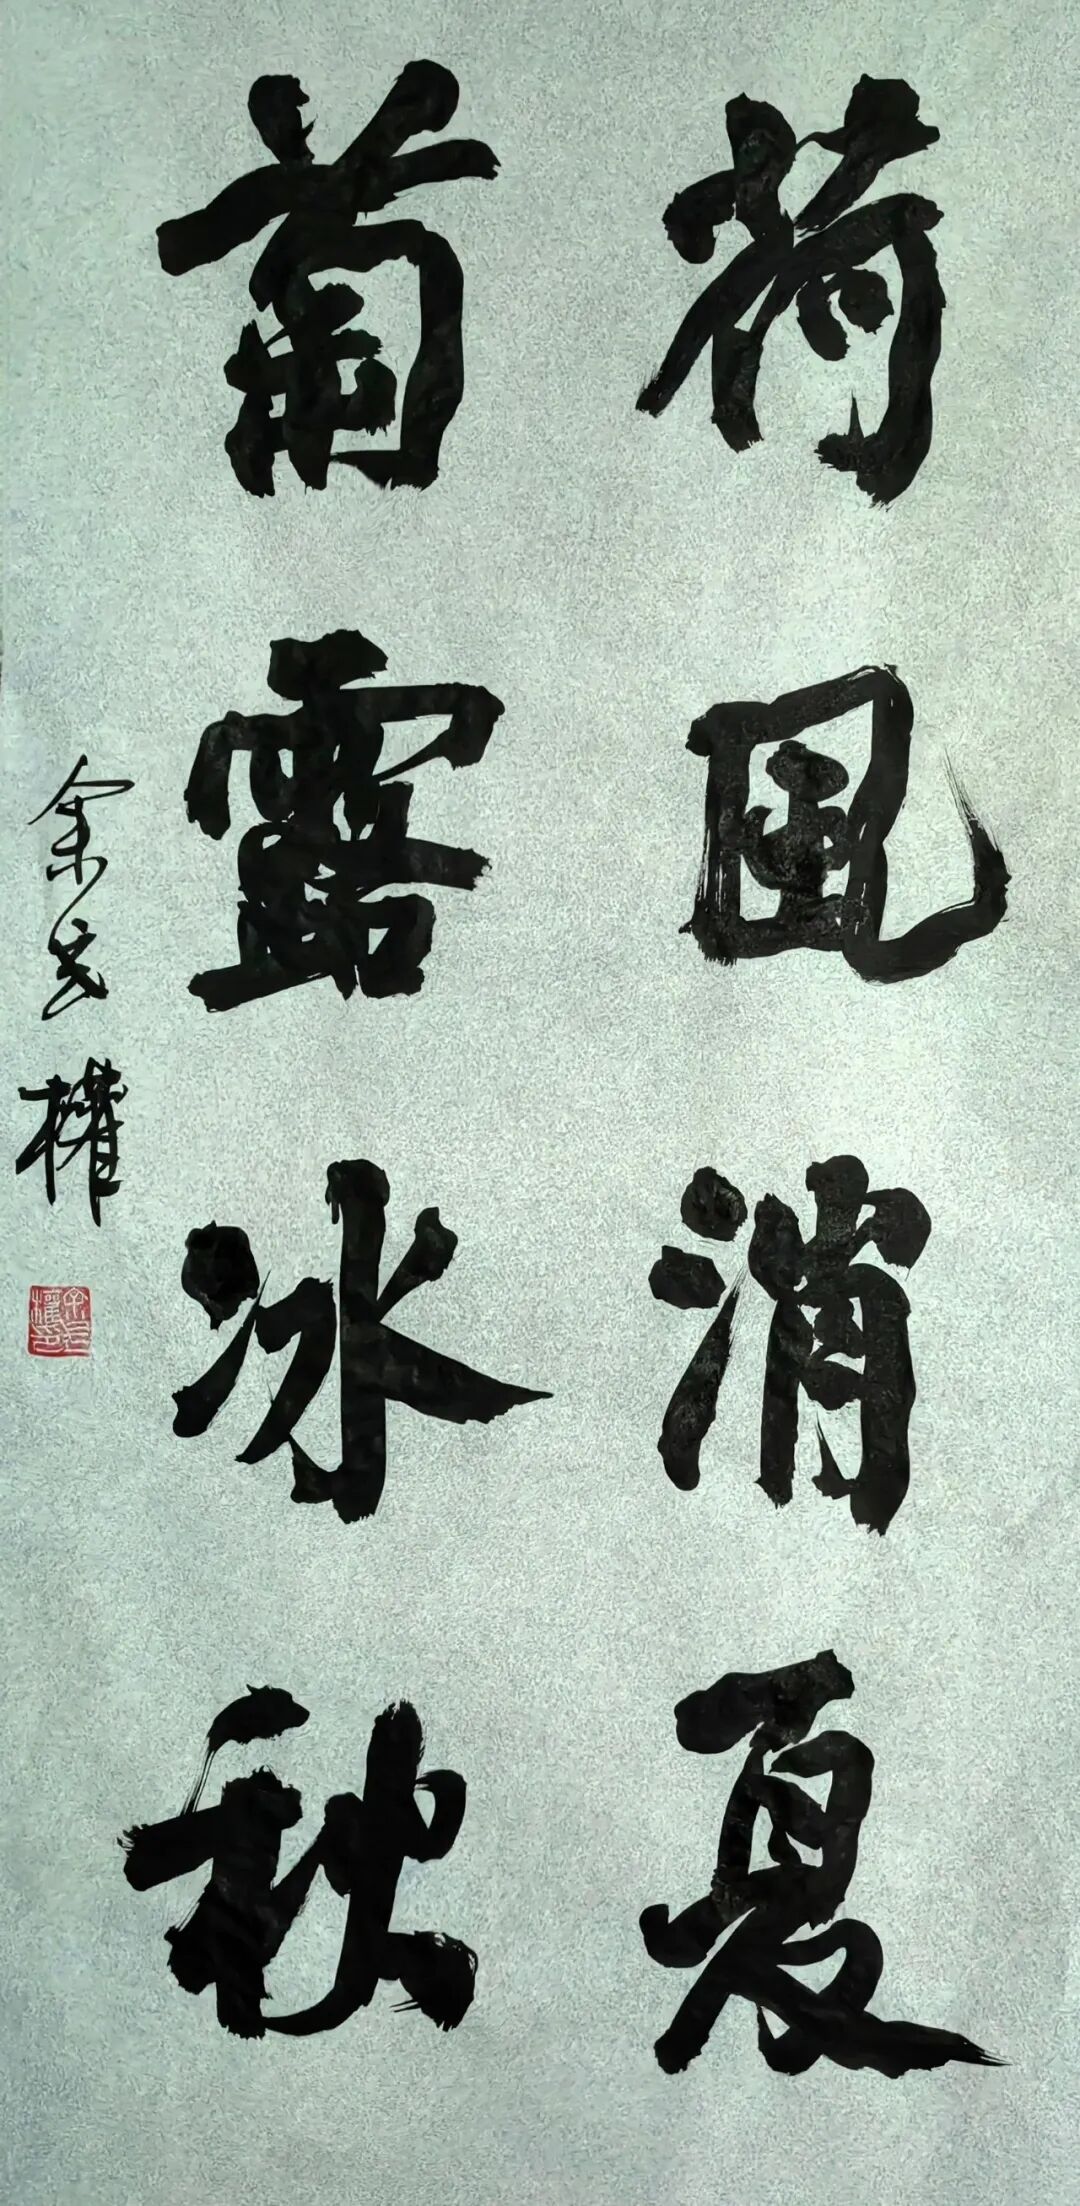 荷風消夏
菊露冰秋
余民權